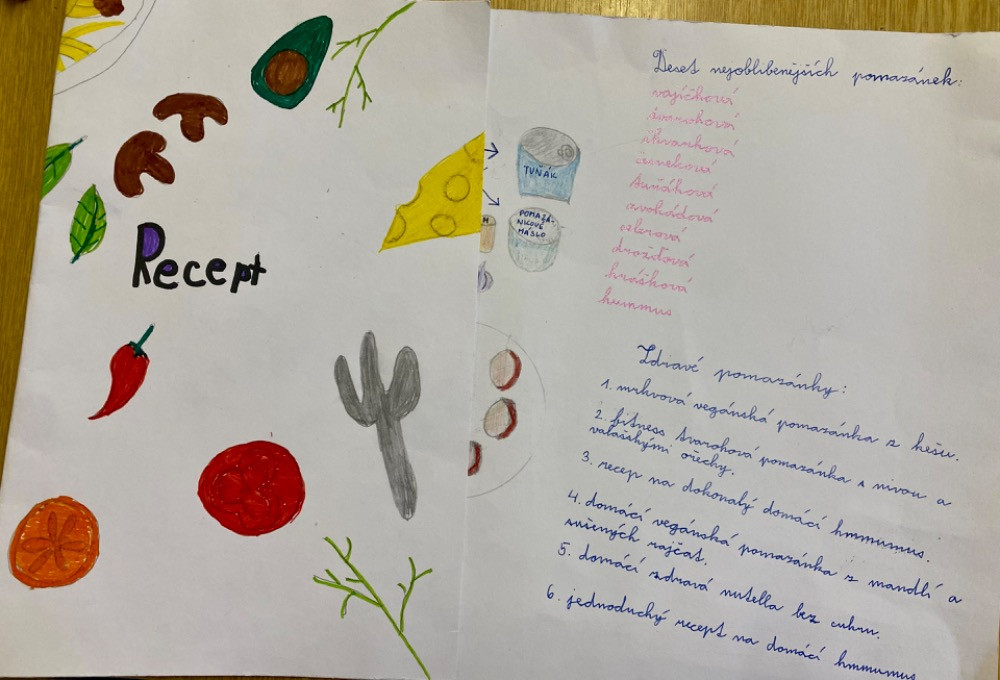 Recept
TUŇÁK
POMAZÁ-
NKOVÉ
MÁSLO
Deset nejoblíbenějších pomazánek:
vajíčková
tvarohová
škvarková
česneková
tuňáková
avokádová
celerová
drožďová
hrášková
hummus
Zdravé pomazánky:
1. mrkvová vegánská pomazánka z kešu.
2. fitness tvarohová pomazánka s nivou a
valašskými ořechy.
3. recep na dokonalý domácí hmmumus.
4. domácí vegánská pomazánka z mandlí a
sušených rajčat.
5. domácí zdravá nutella bez cukru.
6. jednoduchý recept na domácí hmmumus